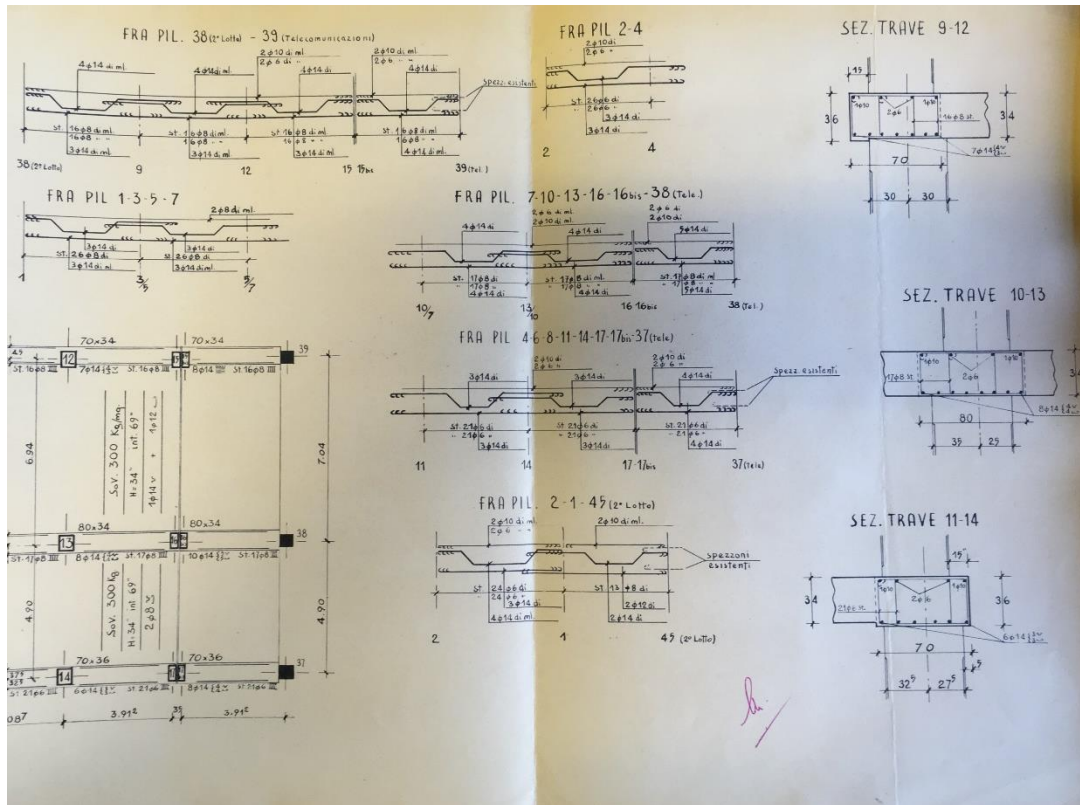 FRA PIL. 38 (2º Lotto) - 39 (Telecomunicazioni)
2ϕ10 di ml.
2ϕ6 di "
2ϕ10 di ml.
2ϕ6 " "
4ϕ14 di ml.
4ϕ14 di
4ϕ14 di
4ϕ14 di
spezz. esistenti
st. 16ϕ8 di ml.
16ϕ8 " "
3ϕ14 di ml.
st. 16ϕ8 di ml.
16ϕ8 " "
3ϕ14 di ml.
st. 16ϕ8 di
16ϕ8 " "
3ϕ14 di ml.
st. 16ϕ8 di
16ϕ8 " "
4ϕ14 di ml.
38 (2º Lotto) 9 12 15 15bis 39 (Tel.)
FRA PIL 2-4
2ϕ10 di ml.
2ϕ6 " "
4ϕ14 di ml.
3ϕ14 di
st. 26ϕ6 di
26ϕ6 "
3ϕ14 di
2 4
SEZ. TRAVE 9-12
15
1ϕ10
2ϕ6
1ϕ10
16ϕ8 st.
36
34
7ϕ14
70
30 30
FRA PIL 1-3-5-7
2ϕ8 di ml.
3ϕ14 di
3ϕ14 di
st. 26ϕ8 di
3ϕ14 di ml.
st. 26ϕ8 di
3ϕ14 di ml.
1 3/5 5/7
FRA PIL. 7-10-13-16-16bis-38 (Tele.)
2ϕ6 di ml.
2ϕ10 di ml.
2ϕ6 di
2ϕ10 di
4ϕ14 di
4ϕ14 di
5ϕ14 di
st. 17ϕ8 di
" 17ϕ8 "
4ϕ14 di
st. 17ϕ8 di ml.
" 17ϕ8 " "
4ϕ14 di
st. 17ϕ8 di ml.
" 17ϕ8 " "
5ϕ14 di
10/7 13/10 16 16bis 38 (Tel.)
SEZ. TRAVE 10-13
1ϕ10
1ϕ10
17ϕ8 st.
2ϕ6
8ϕ14
80
35 25
FRA PIL 4-6-8-11-14-17-17bis-37 (tele)
2ϕ10 di
2ϕ6 "
2ϕ10 di
2ϕ6 "
3ϕ14 di
3ϕ14 di
4ϕ14 di
spezz. esistenti
st. 21ϕ6 di
" 21ϕ6 "
3ϕ14 di
st. 21ϕ6 di
" 21ϕ6 "
3ϕ14 di
st. 21ϕ6 di
" 21ϕ6 "
4ϕ14 di
11 14 17-17bis 37 (Tele)
FRA PIL. 2-1-45 (2º Lotto)
2ϕ10 di ml.
2ϕ10 di ml.
spezzoni
esistenti
st 24ϕ6 di
24ϕ6 "
3ϕ14 di
4ϕ14 di ml.
st 13ϕ8 di
2ϕ12 di
2ϕ14 di
2 1 45 (2º Lotto)
SEZ. TRAVE 11-14
15
1ϕ10
1ϕ10
2ϕ6
21ϕ6 st.
34
36
6ϕ14
70
5
32⁵ 27⁵
70x34 70x34
12
39
45
St. 16ϕ8 7ϕ14 St. 16ϕ8 8ϕ14 St. 16ϕ8
6.94
Sov. 300 Kg/mq
H=34 int. 69"
1ϕ14 + 1ϕ12
7.04
80x34 80x34
13
38
St. 17ϕ8 8ϕ14 St. 17ϕ8 10ϕ14 St. 17ϕ8
4.90
Sov. 300 Kg
H=34 int 69"
2ϕ8
4.90
70x36 70x36
14
37
37⁵
32⁵
St. 21ϕ6 6ϕ14 St. 21ϕ6 8ϕ14 St. 21ϕ6
087 3.91² 35 3.91²